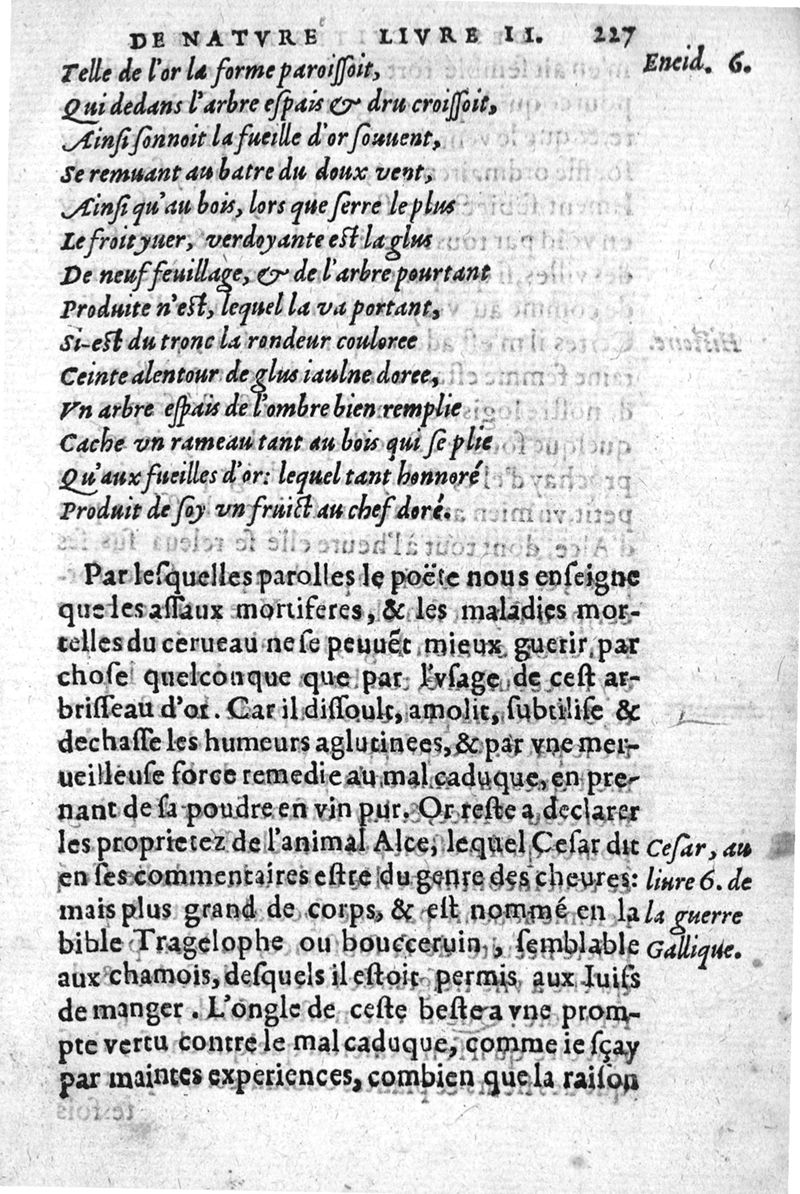 DE NATVRE LIVRE II. 227
Telle de l'or la forme paroiſſoit,
Eneid. 6.
Qui dedans l'arbre eſpais & dru croiſſoit,
Ainſi ſonnoit la fueille d'or ſouuent,
Se remuant au batre du doux vent,
Ainſi qu'au bois, lors que ſerre le plus
Le froit yuer, verdoyante eſt la glus
De neuf feuillage, & de l'arbre pourtant
Produite n'eſt, lequel la va portant,
Si-eſt du tronc la rondeur couloree
Ceinte alentour de glus iaulne doree,
Vn arbre eſpais de l'ombre bien remplie
Cache vn rameau tant au bois qui ſe plie
Qu'aux fueilles d'or: lequel tant honnoré
Produit de ſoy vn fruict au chef doré.
Par leſquelles parolles le poëte nous enſeigne
que les aſſaux mortiferes, & les maladies mor-
telles du cerueau ne ſe peuuẽt mieux guerir par
choſe quelconque que par l'vſage de ceſt ar-
briſſeau d'or. Car il diſſoult, amolit, ſubtiliſe &
dechaſſe les humeurs aglutinees, & par vne mer-
ueilleuſe force remedie au mal caduque, en pre-
nant de ſa poudre en vin pur. Or reſte a declarer
les proprietez de l'animal Alce, lequel Ceſar dit
en ſes commentaires eſtre du genre des cheures:
mais plus grand de corps, & eſt nommé en la
bible Tragelophe ou boucceruin, ſemblable
aux chamois, deſquels il eſtoit permis aux Iuifs
de manger. L'ongle de ceſte beſte a vne prom-
pte vertu contre le mal caduque, comme ie ſçay
par maintes experiences, combien que la raiſon
Ceſar, au
liure 6. de
la guerre
Gallique.